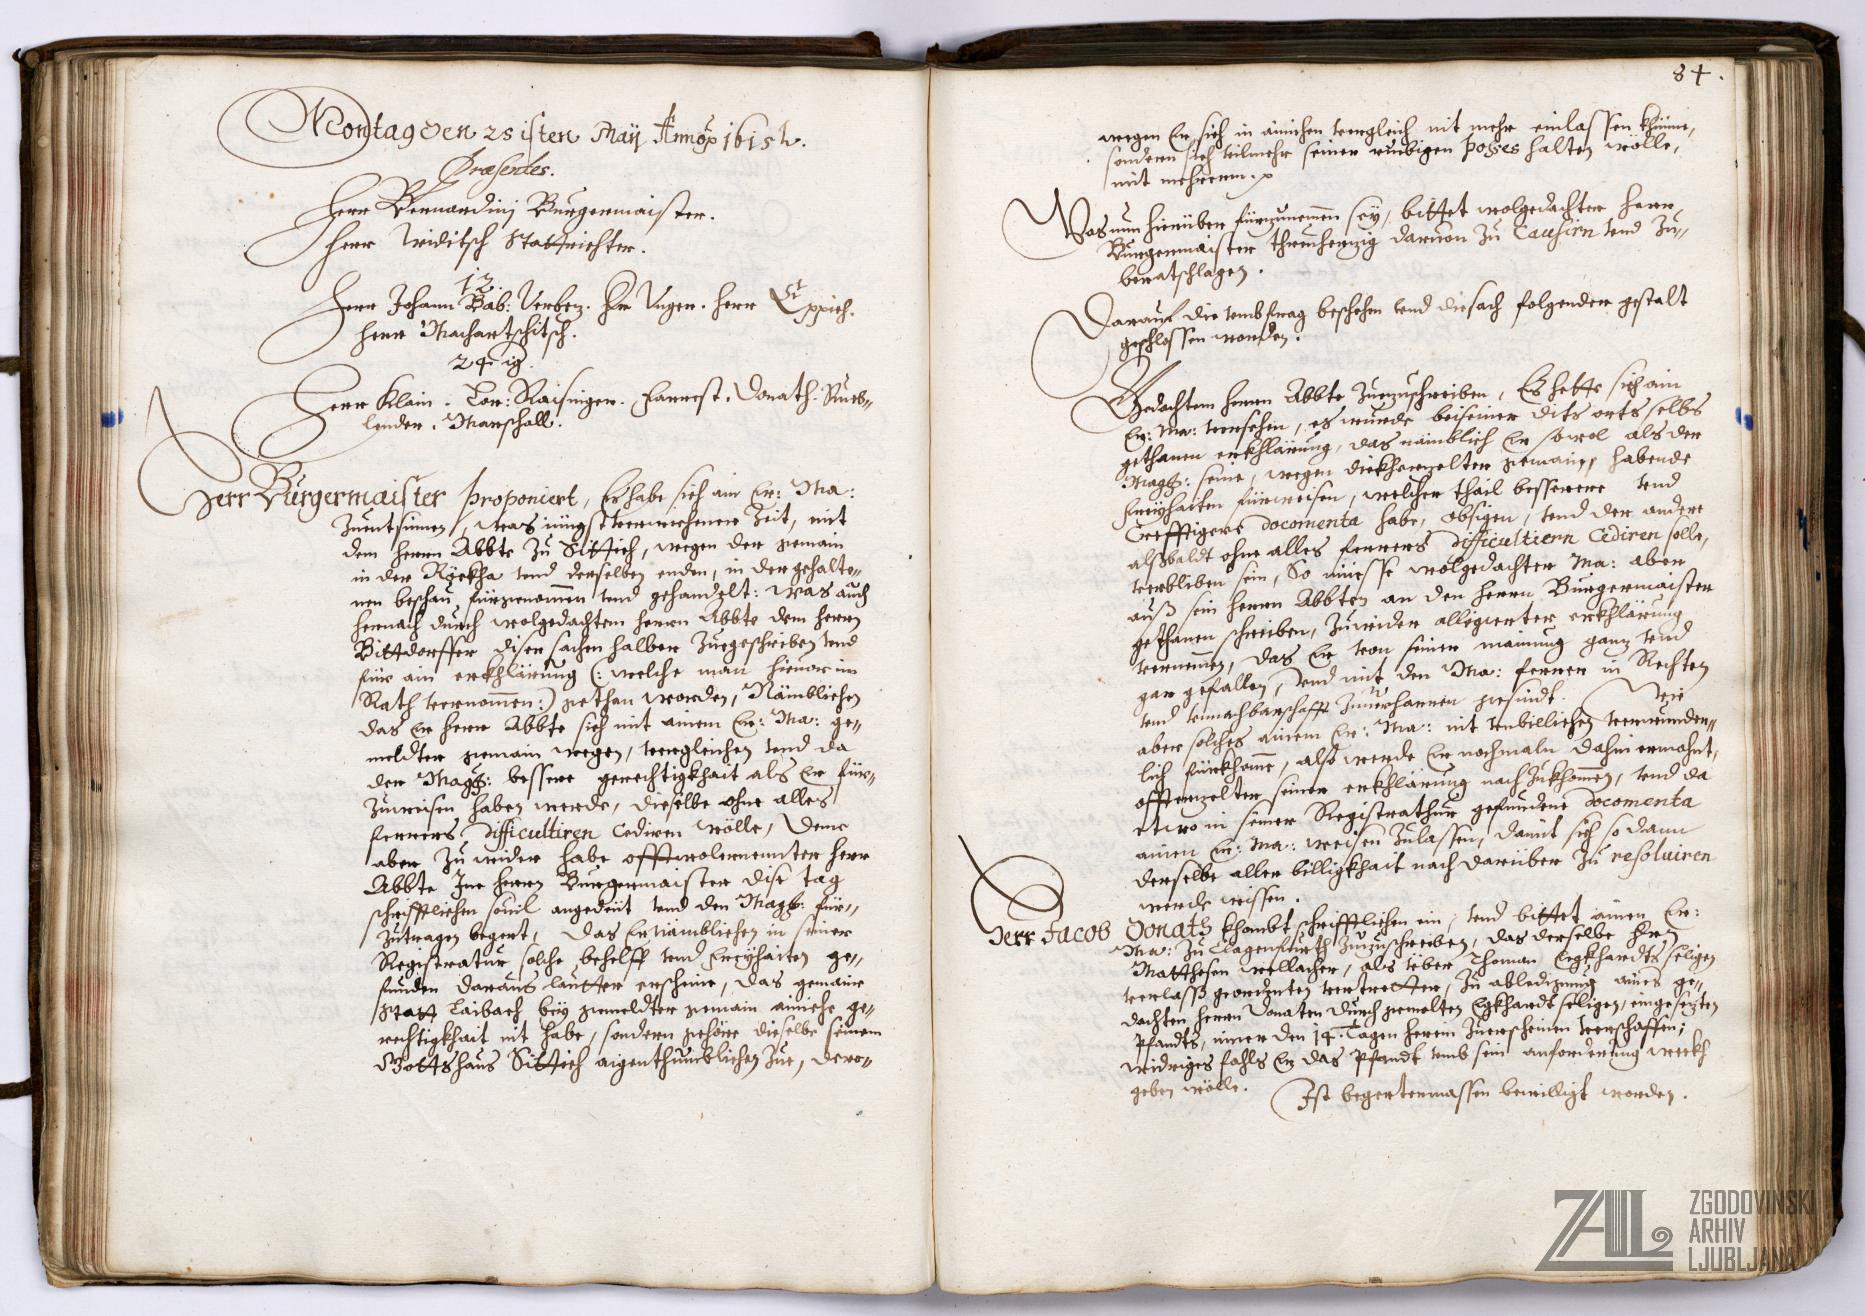 Montag den 25isten Maÿ Anno 1615 h.
Præsentes.
Herr Bernardinj Burgermaister.
Herr Widitsch Stattrichter.
12.
Herr Johann Bab: Verbez. Hr Unger. Herr Eppich.
Herr Machartschitsch.
24ig.
Herr Klain. Cor: Raisinger. Farrest. Donath.
lender. Marschall.
Herr Burgermaister proponiert, Er habe sich ain Er: Ma:
zuentsinnen, was jüngst verwichener Zeit, mit
dem herrn Abbte zu Sittich, wegen der gemain
in der Röckha und derselben enden, in der gehalte-
nen beschau fürgenommen und gehandelt: was auch
hernach durch wolgedachtem herrn Abbte dem herrn
Bittdorffer diser sachen halber zuegeschriben und
für ain erkhlärung (: welche man hieuor im
Rath vernommen:) gethan worden, Nämblichen
das Er herr Abbte sich mit ainem Er: Ma: ge-
meldter gemain wegen, vergleichen und da
der Magg: bessere gerechtigkhait als Er für-
zuweisen haben werde, dieselbe ohne alles
ferrers difficultiren cediren wölle, Deme
aber zu wider habe offtwolernennter herr
Abbte Ime herrn Burgermaister dise tag
schrifftlichen souil angedeüt und den Magg: für-
zutragen begert, das Er nämblichen in seiner
Registratur solche behelff und freÿhaiten ge-
funden daraus lautter erscheine, das gemaine
Statt Laibach beÿ gemeldter gemain ainiche ge-
rechtigkhait nit habe, sondern gehöre dieselbe seinem
Gottshaus Sittich aigenthumblichen zue, dero-
84.
wegen Er sich in ainichen vergleich nit mehr einlassen khünne,
sondern sich vilmehr seiner ruebigen posses halten wölle,
mit mehrerm.
Was nun hierüber fürzunemen seÿ, bittet wolgedachter herr
Burgermaister threuherzig daruon zu causirn und zu-
beratschlagen.
Darauf die umbfrag beschehen und die sach folgender gestalt
geschlossen worden.
Gedachtem herrn Abbte zuezuschreiben, Es hette sich ain
Er: Ma: versehen, es wurde beÿ seiner dits orts selbs
gethanen erkhlärung, das nämblich Er sowol als der
Magg: seine, wegen dickhernelter gemain, habende
freÿhaiten fürweisen, welcher thail bessere und
crefftigere documenta habe, obsigen, und der andere
alßbaldt ohne alles ferrers difficultiern cediren solle,
verbliben sein, So müesse wolgedachter Ma: aber
auß sein herrn Abbten an den herrn Burgermaister
gethanen schreiben, zuwider allegierter erkhlärung
vernemen, das Er von seiner mainung ganz und
gar gefallen, und mit den Ma: ferrer in Rechten
und unnachbarschafft zuuerharren gesindt. Wie
aber solches ainem Er: Ma: nit unbillichen verwunder-
lich fürkhome, also werde Er nochmaln dahin ermahnt,
offternelter seiner erkhlärung nachzukhomen, und da
etwo in seiner Registrathur gefundene documenta
ainen Er: Ma: weisen zulassen, damit sich so dann
derselbe aller billigkhait nach darüber zu resoluiren
werde wissen.
Herr Jacob Donath khombt schrifftlichen ein, und bittet ainen Er:
Ma: zu Clagenfurth zuezuschreiben, das derselbe Hern
Mattheseen Villacher, als über Thoman Egkhardts seligen
verlaß geordneten vertretter, zu abledigung aines ge-
dachten herrn Donaten durch gemelten Egkhardt seligen, eingesezten
Pfandts, inner den 14. Tagen herein zuerscheinen verschaffen;
widriges fahls Er das Pfandt umb sein anforderung weckh
geben wölle. Ist begertermassen bewilligt worden.
ZAL ZGODOVINSKI
ARHIV
LJUBLJANA